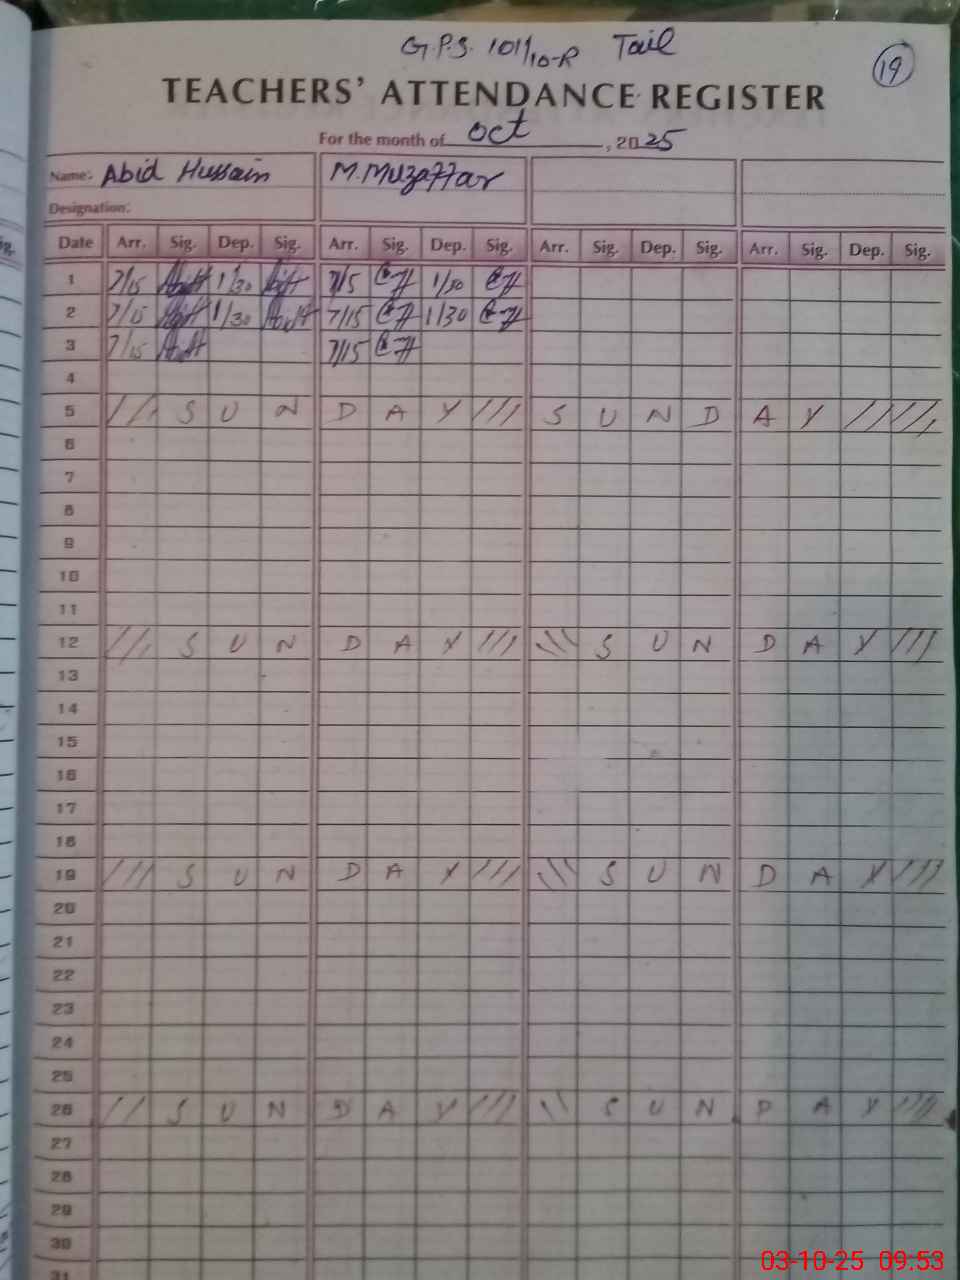 G.P.S. 101/10-R Tail
19
TEACHERS' ATTENDANCE REGISTER
For the month of Oct, 2025
Name: Abid Hussain M. Muzaffar
Designation:
Date Arr. Sig. Dep. Sig. Arr. Sig. Dep. Sig. Arr. Sig. Dep. Sig. Arr. Sig. Dep. Sig.
1 7/15 1/30 7/15 1/30
2 7/15 1/30 7/15 1/30
3 7/15 7/15
4
5 /// S U N D A Y /// S U N D A Y ///
6
7
8
9
10
11
12 /// S U N D A Y /// \\\ S U N D A Y ///
13
14
15
16
17
18
19 /// S U N D A Y /// \\\ S U N D A Y ///
20
21
22
23
24
25
26 // S U N D A Y /// \\ S U N D A Y ///
27
28
29
30
31
03-10-25 09:53